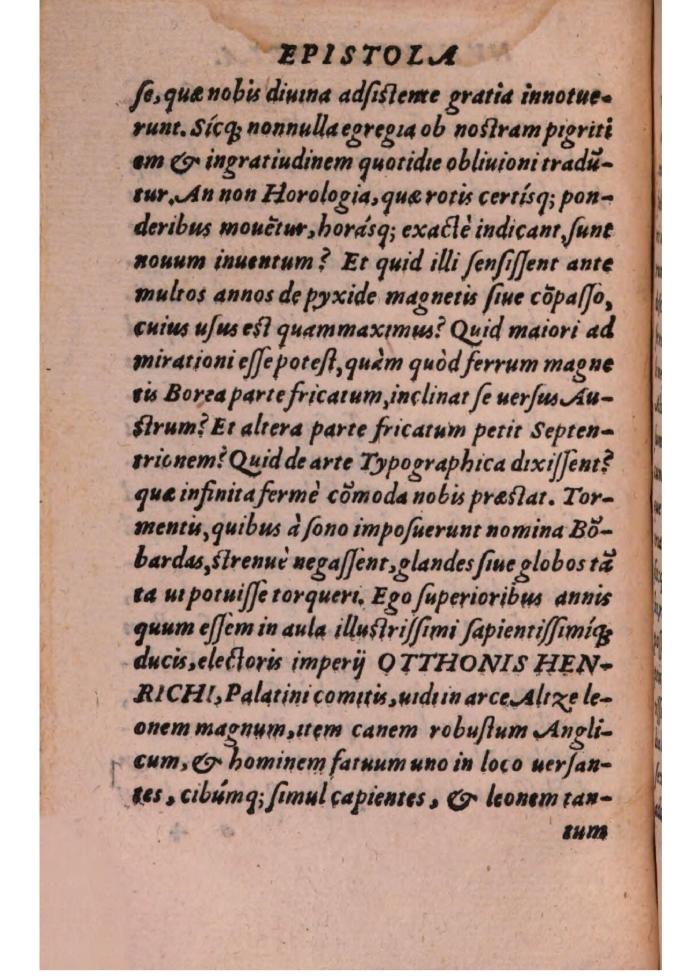 EPISTOLA
se, quæ nobis diuina adsistente gratia innotue-
runt. Sícq; nonnulla egregia ob nostram pigriti
em & ingratiudinem quotidie obliuioni tradū-
tur. An non Horologia, quæ rotis certísq; pon-
deribus mouētur, horásq; exactè indicant, sunt
nouum inuentum? Et quid illi sensissent ante
multos annos de pyxide magnetis siue cōpasso,
cuius usus est quammaximus? Quid maiori ad
mirationi esse potest, quàm quòd ferrum magne
tis Borea parte fricatum, inclinat se uersus Au-
strum? Et altera parte fricatum petit Septen-
trionem? Quid de arte Typographica dixissent?
quæ infinita fermè cōmoda nobis præstat. Tor-
mentis, quibus à sono imposuerunt nomina Bō-
bardas, strenuè negassent, glandes siue globos tā
ta ui potuisse torqueri. Ego superioribus annis
quum essem in aula illustrissimi sapientissimíq;
ducis, electoris imperij OTTHONIS HEN-
RICHI, Palatini comitis, uidi in arce Altze le-
onem magnum, item canem robustum Angli-
cum, & hominem fatuum uno in loco uersan-
tes, cibúmq; simul capientes, & leonem tan-
tum